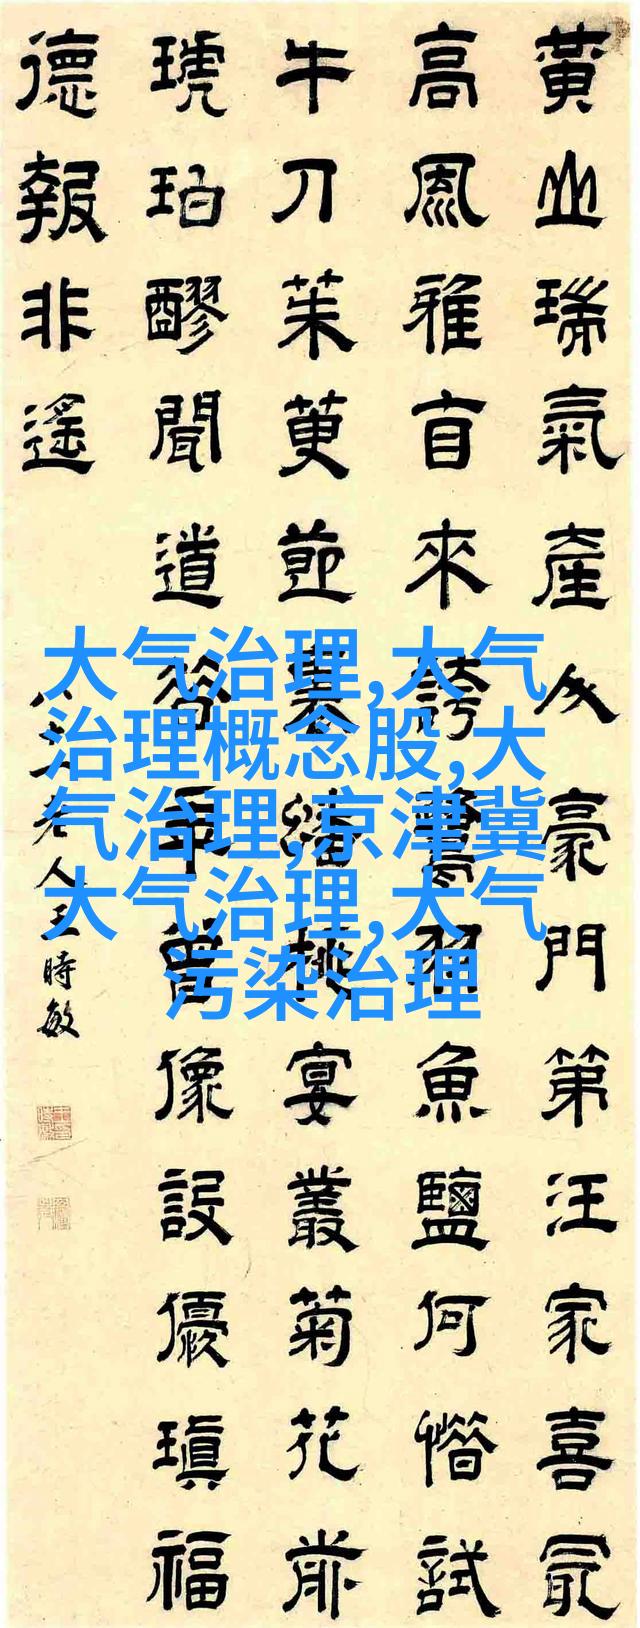 黃山瑞氣產人豪門第汪家喜冣
高風雅來誇羽魚鹽何試
牛刀茱萸節宴叢菊花前
琥珀醪聞道曾像設優瑱福
德報非遙
老人王時敏
大气治理,大气
治理概念股,大
气治理,京津冀
大气治理,大气
污染治理